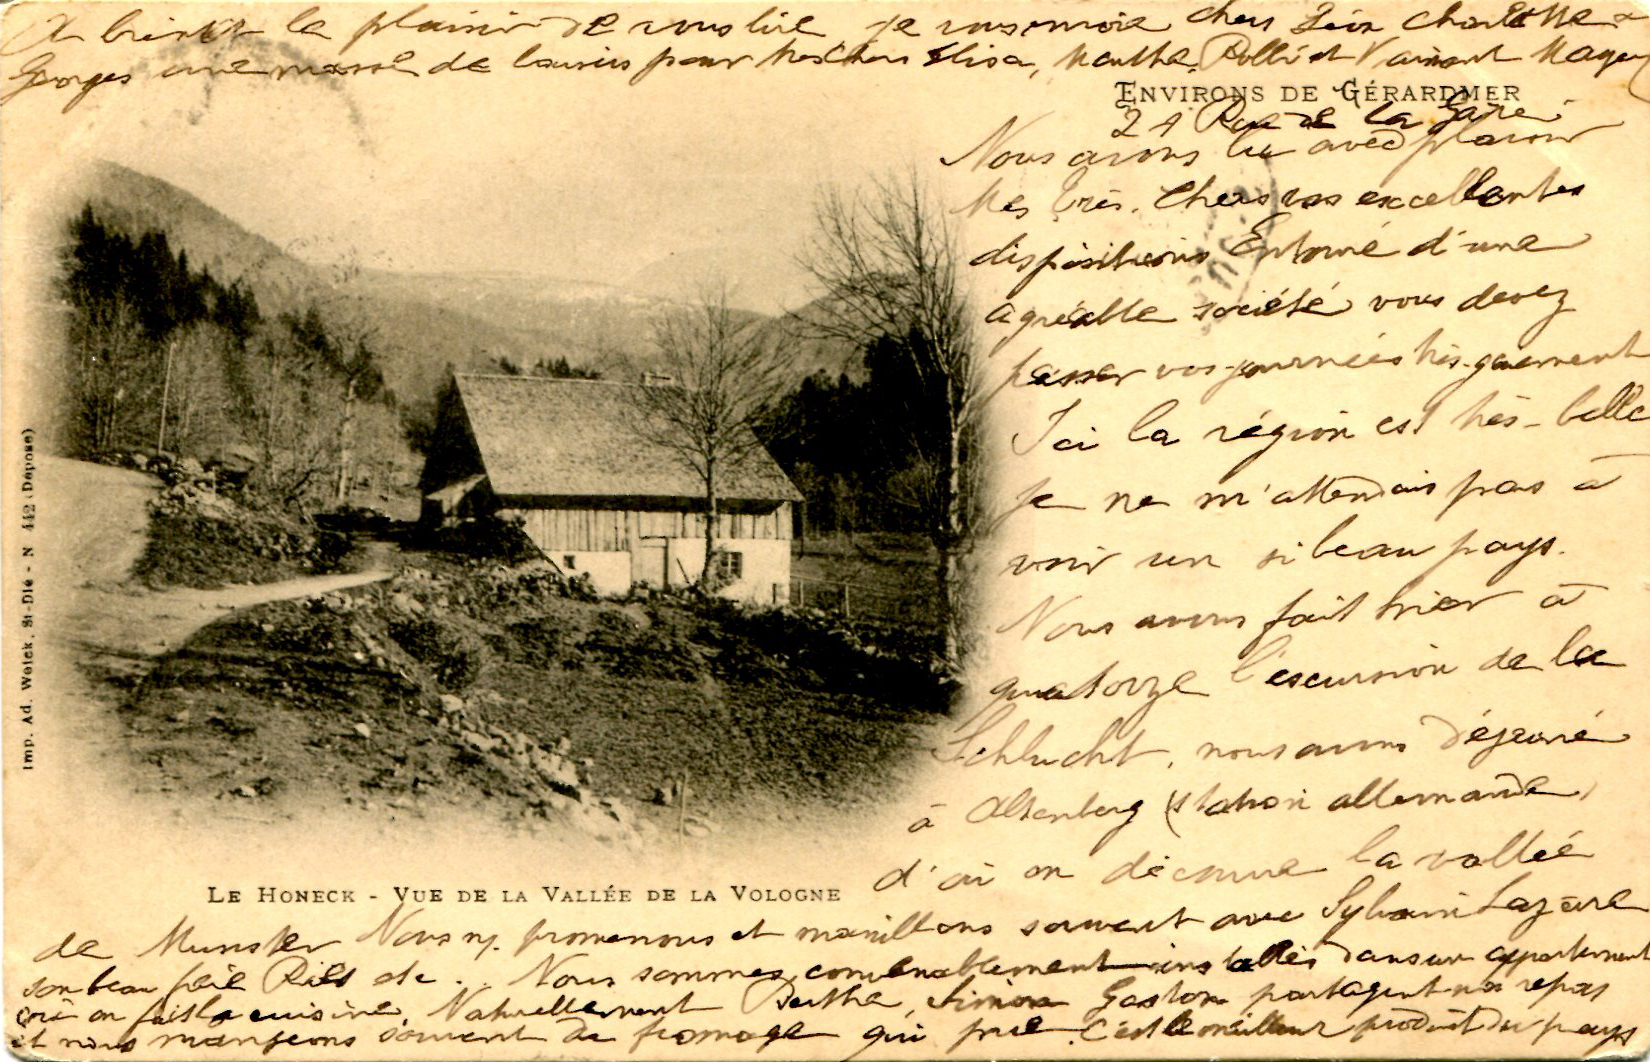 A bientôt le plaisir de vous lire je vous envoie chers Léon Charlotte &
Georges une masse de baisers pour nos chers Elisa, Marthe, et
ENVIRONS DE GÉRARDMER
21 Rue de la Gare
Nous avons lu avec plaisir
Mes très Chers vos excellentes
dispositions Entouré d'une
agréable société vous devez
passer vos journées très-gaiement
Ici la région est très-belle
je ne m'attendais pas à
voir un si beau pays.
Nous avons fait hier à
quatorze l'escursion de la
Schlucht, nous avons déjeuné
à Altenberg (station allemande)
d'où on découvre la vallée
LE HONECK - VUE DE LA VALLÉE DE LA VOLOGNE
de Munster Nous n. promenons et manillons souvent avec Sylvain Lazare
son beau frère etc.. Nous sommes convenablement installés dans un appartement
où on fait la cuisine. Naturellement Berthe, Simon Gaston partagent nos repas
et nous mangeons souvent du fromage qui pue. C'est le meilleur produit du pays
Imp. Ad. Weick, St-Dié - N 442 (Déposé)